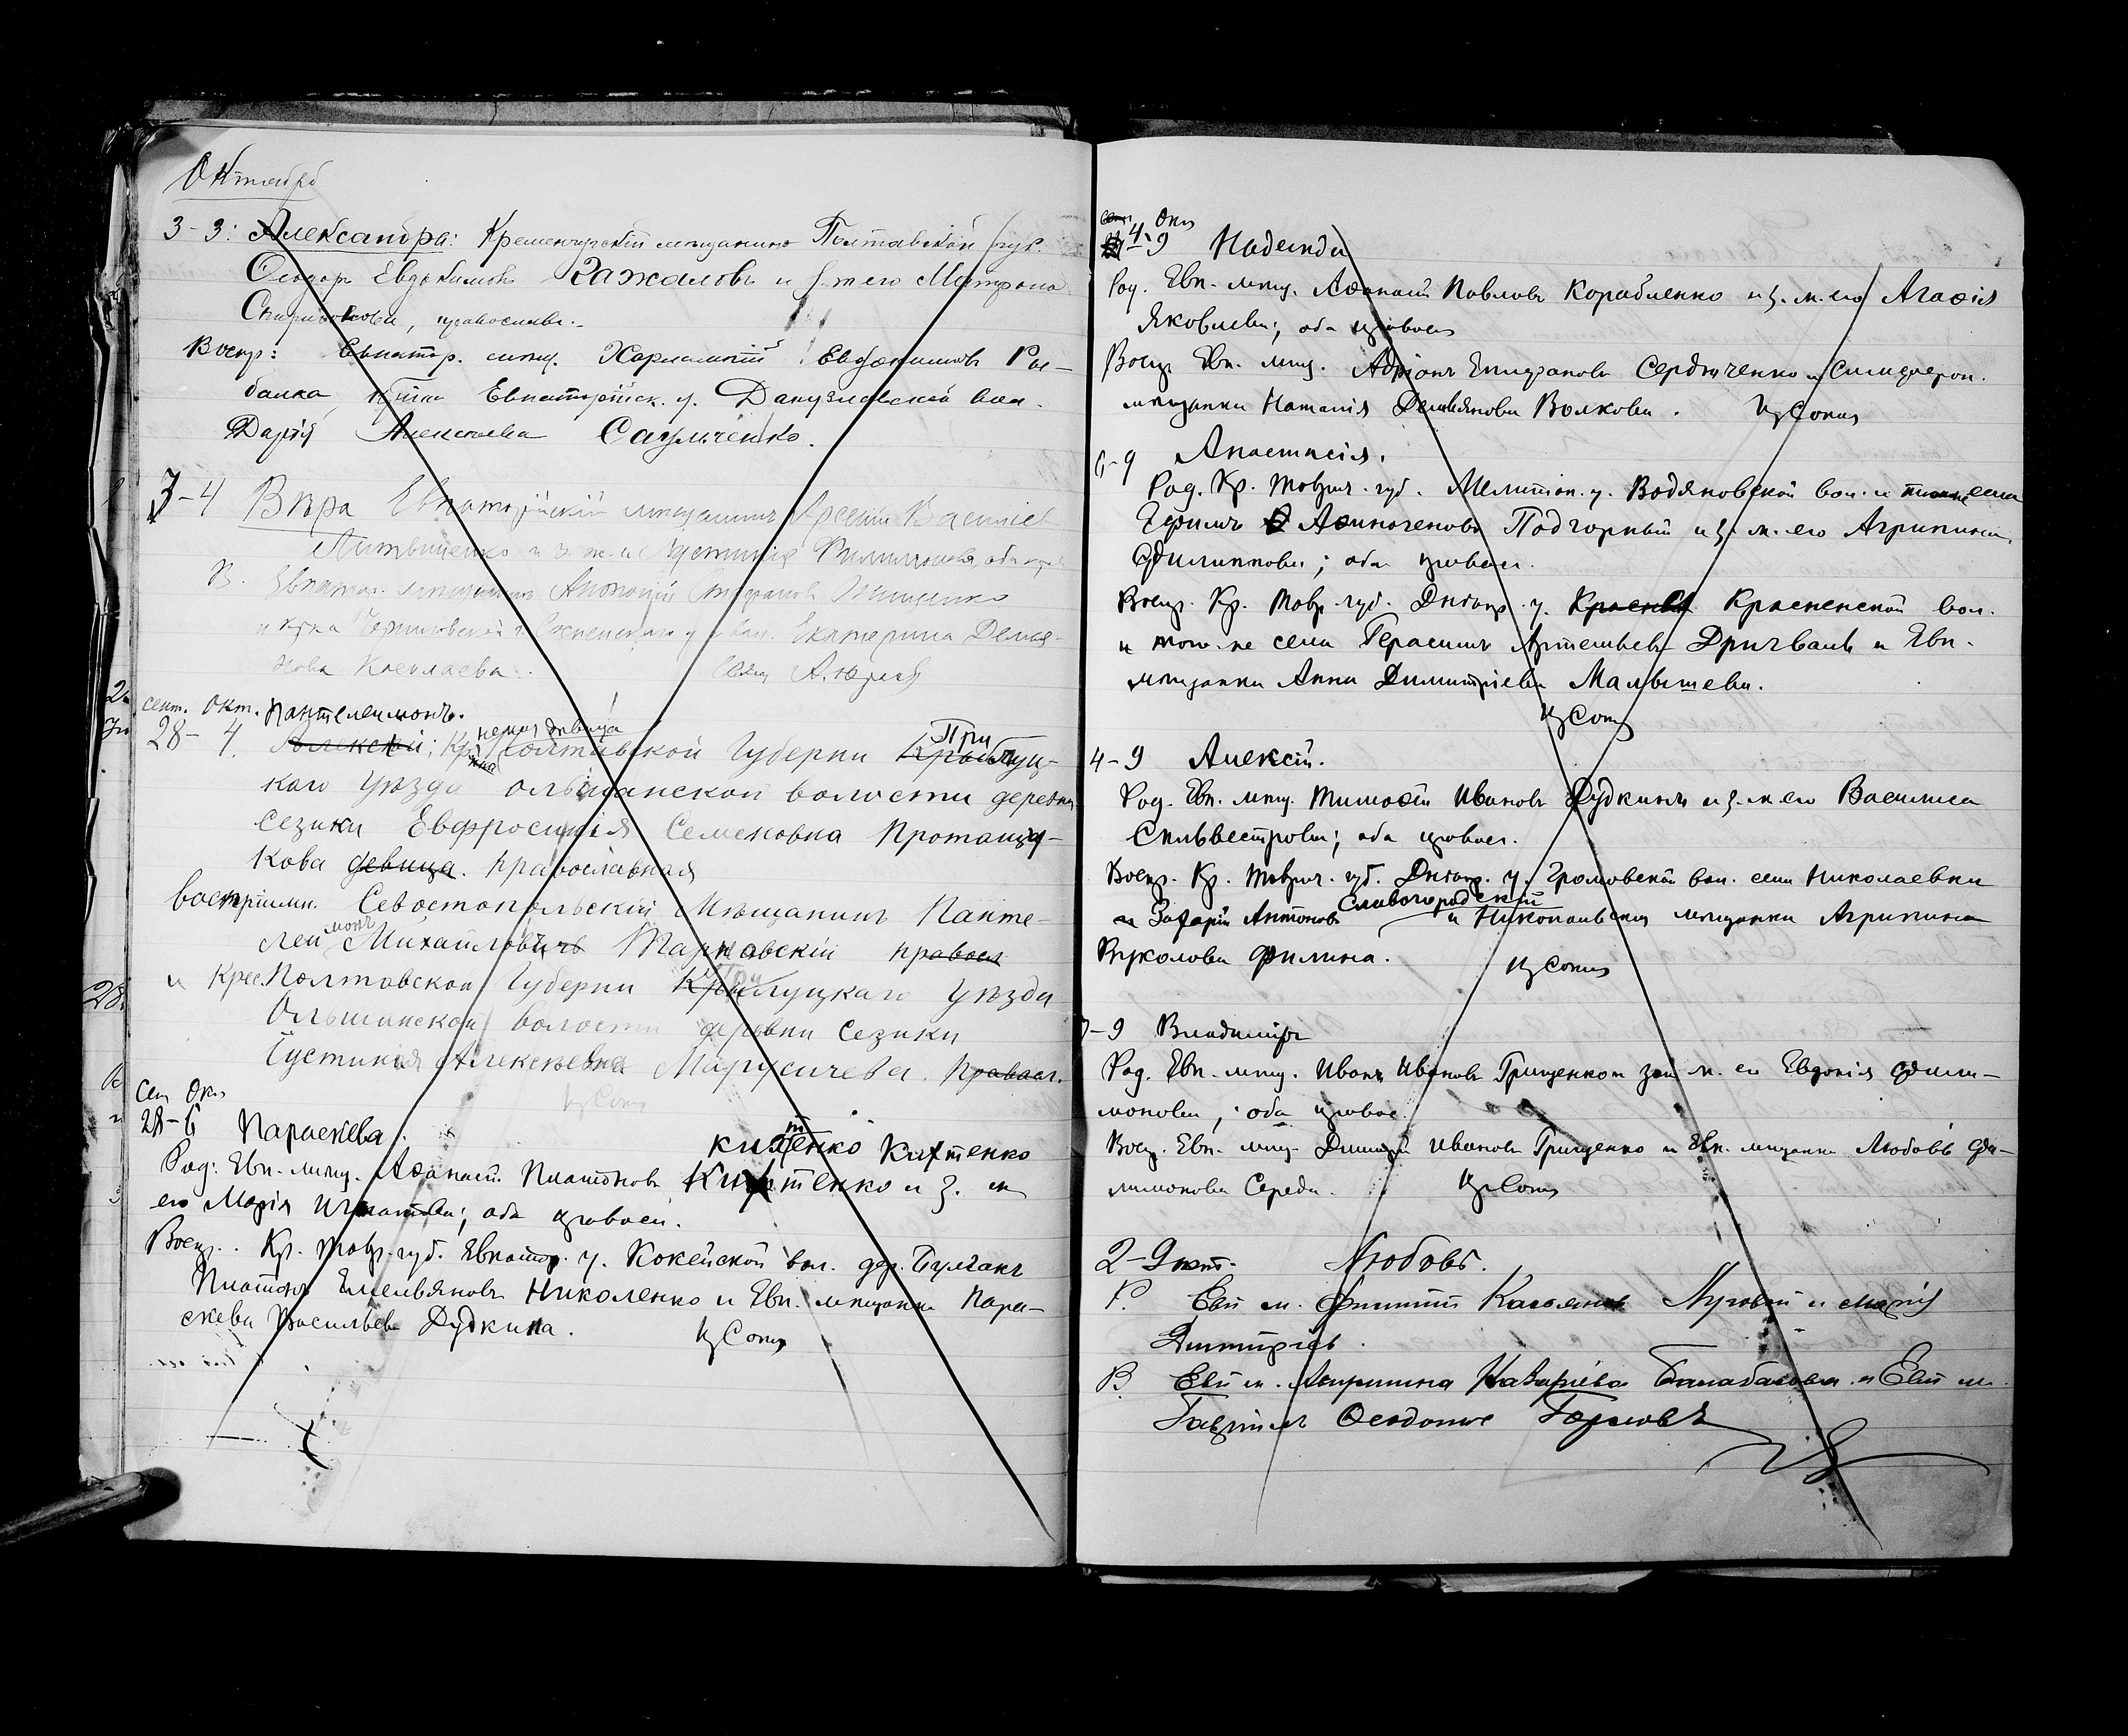 Октябрь
3-3: Александра: Кременчугскій мѣщанинъ Полтавской губ.
Ѳеодоръ Евдокимовъ Ражаловъ и з. ж. его Матрона
Спиридонова, православн.
Воспр: Евпатор. мѣщ. Харлампій Евдокимовъ
балка, Евпаторійск. у. Донузлавской вол.
Дарія Алексѣева Саульченко.
3-4 Вѣра Евпаторійскій мѣщанинъ Арсеній
Литвиненко и з. ж. е. Іустинія Филимонова, оба
В. Евпатор. мѣщанинъ Антоній Стефановъ
и кр-ка Черниговской г. Екатерина Демья-
нова
сент. Окт. Пантелеимонъ.
28- 4. Алексѣй: Кр. Полтавской Губерни При луц-
каго Уѣзда Ольшанской волости деревни
Сезики Евфросинія Семеновна Протанцу-
кова девица. православная
восприимн. Севостопольскій Мѣщанинъ Панте-
леи монъ Михайловичъ Тарнавскій правосл
и Крес. Полтовской Губерни При луцкаго Уѣзда
Ольшинской волости деревни Сезики
Іустинія Алексѣевна Марусичева. Правосл.
Сен Окт
28-6 Параскева.
китенко Кихтенко
Род: Евп. мѣщ. Аѳанасій Платоновъ и з. ж
его Марія Игнатова; оба правосл.
Воспр. Кр. Тавр. губ. Евпатор. у. Кокейской вол. дер. Булганъ
Платонъ Емельяновъ Николенко и Евп. мѣщанка Пара-
скева Васильева Дудкина.
Окт
4-9 Надежда
Род. Евп. мѣщ. Аѳанасій Павловъ Корабленко и з. ж. его Агаѳія
Яковлева; оба правосл
Воспр Евп. мѣщ. Адріанъ Епифановъ Сердюченко и Симфероп.
мѣщанка Наталія Демьянова Волкова.
6-9 Анастасія.
Род. Кр. Таврич. губ. Мелитоп. у. Водяновской вол. и села
Ефимъ Аѳиногеновъ Подгорный и з. ж. его Агрипина
Филиппова; оба правосл.
Воспр. Кр. Тавр. губ. Днѣпр. у. Красненской вол.
и того-же села Герасимъ Артемьевъ и Евп.
мѣщанка Анна Димитріева Малышева.
4-9 Алексій.
Род. Евп. мѣщ. Тимоѳей Ивановъ Дудкинъ и з. ж. его Василиса
Сильвестрова; оба правосл.
Воспр. Кр. Таврич. губ. Днѣпр. у. Громовской вол. села Николаевки
Захарій Антоновъ Славгородскій и Никопольская мѣщанка Агрипина
Вуколова Филина.
-9 Владиміръ
Род. Евп. мѣщ. Иванъ Ивановъ Грищенко и зак. ж. ег Евдокія Фили-
монова; оба правос.
Воспр. Евп. мѣщ. Димитрій Ивановъ Грищенко и Евп. мѣщанка Любовь Фи-
лимонова Середа.
2-9 окт. Любовь.
Р. Евп м. Филиппъ Касьяновъ Луговой и Марія
Димитріев.
В. Евп м. Агрипина Назаріева Балабасова и Евп м.
Гавріилъ Ѳеодотовъ